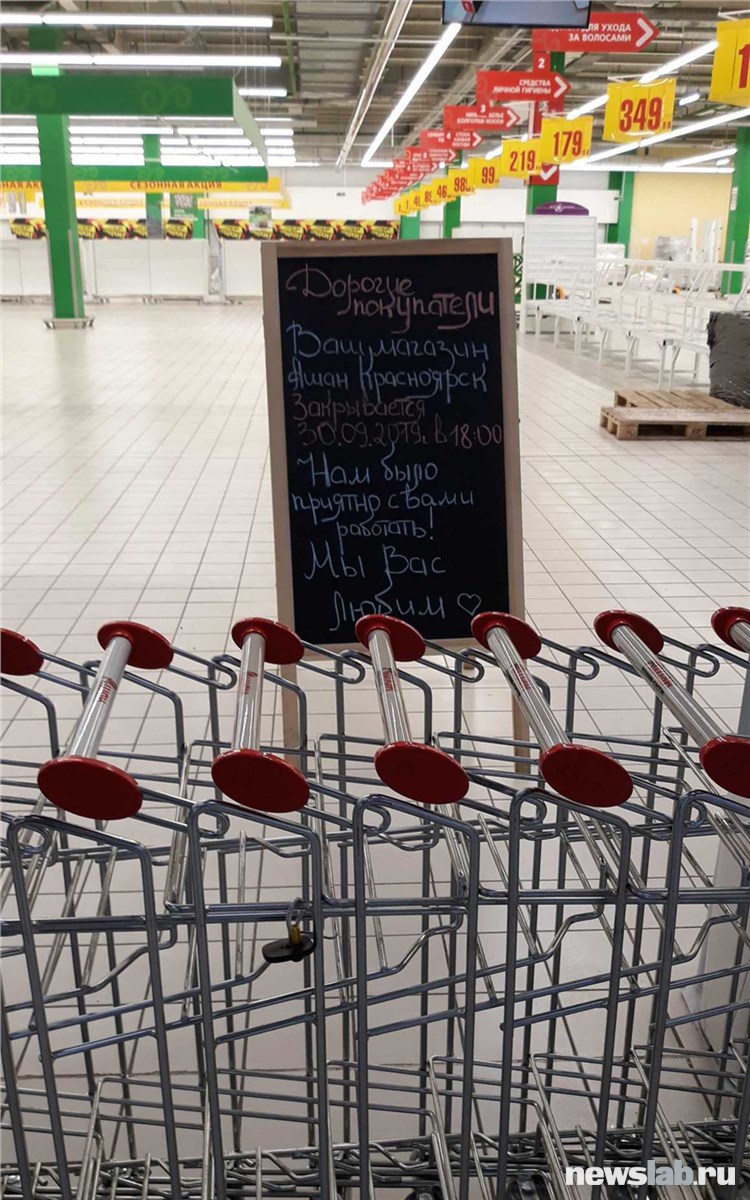 ДЛЯ УХОДА
ЗА ВОЛОСАМИ
2
СРЕДСТВА
ЛИЧНОЙ ГИГИЕНЫ
3
349
179
219
99
98
46
СЕЗОННАЯ АКЦИЯ
Дорогие
покупатели
Ваш магазин
Ашан Красноярск
Закрывается
30.09.2019г. в 18:00
Нам было
приятно с вами
работать!
Мы Вас
любим ♡
newslab.ru